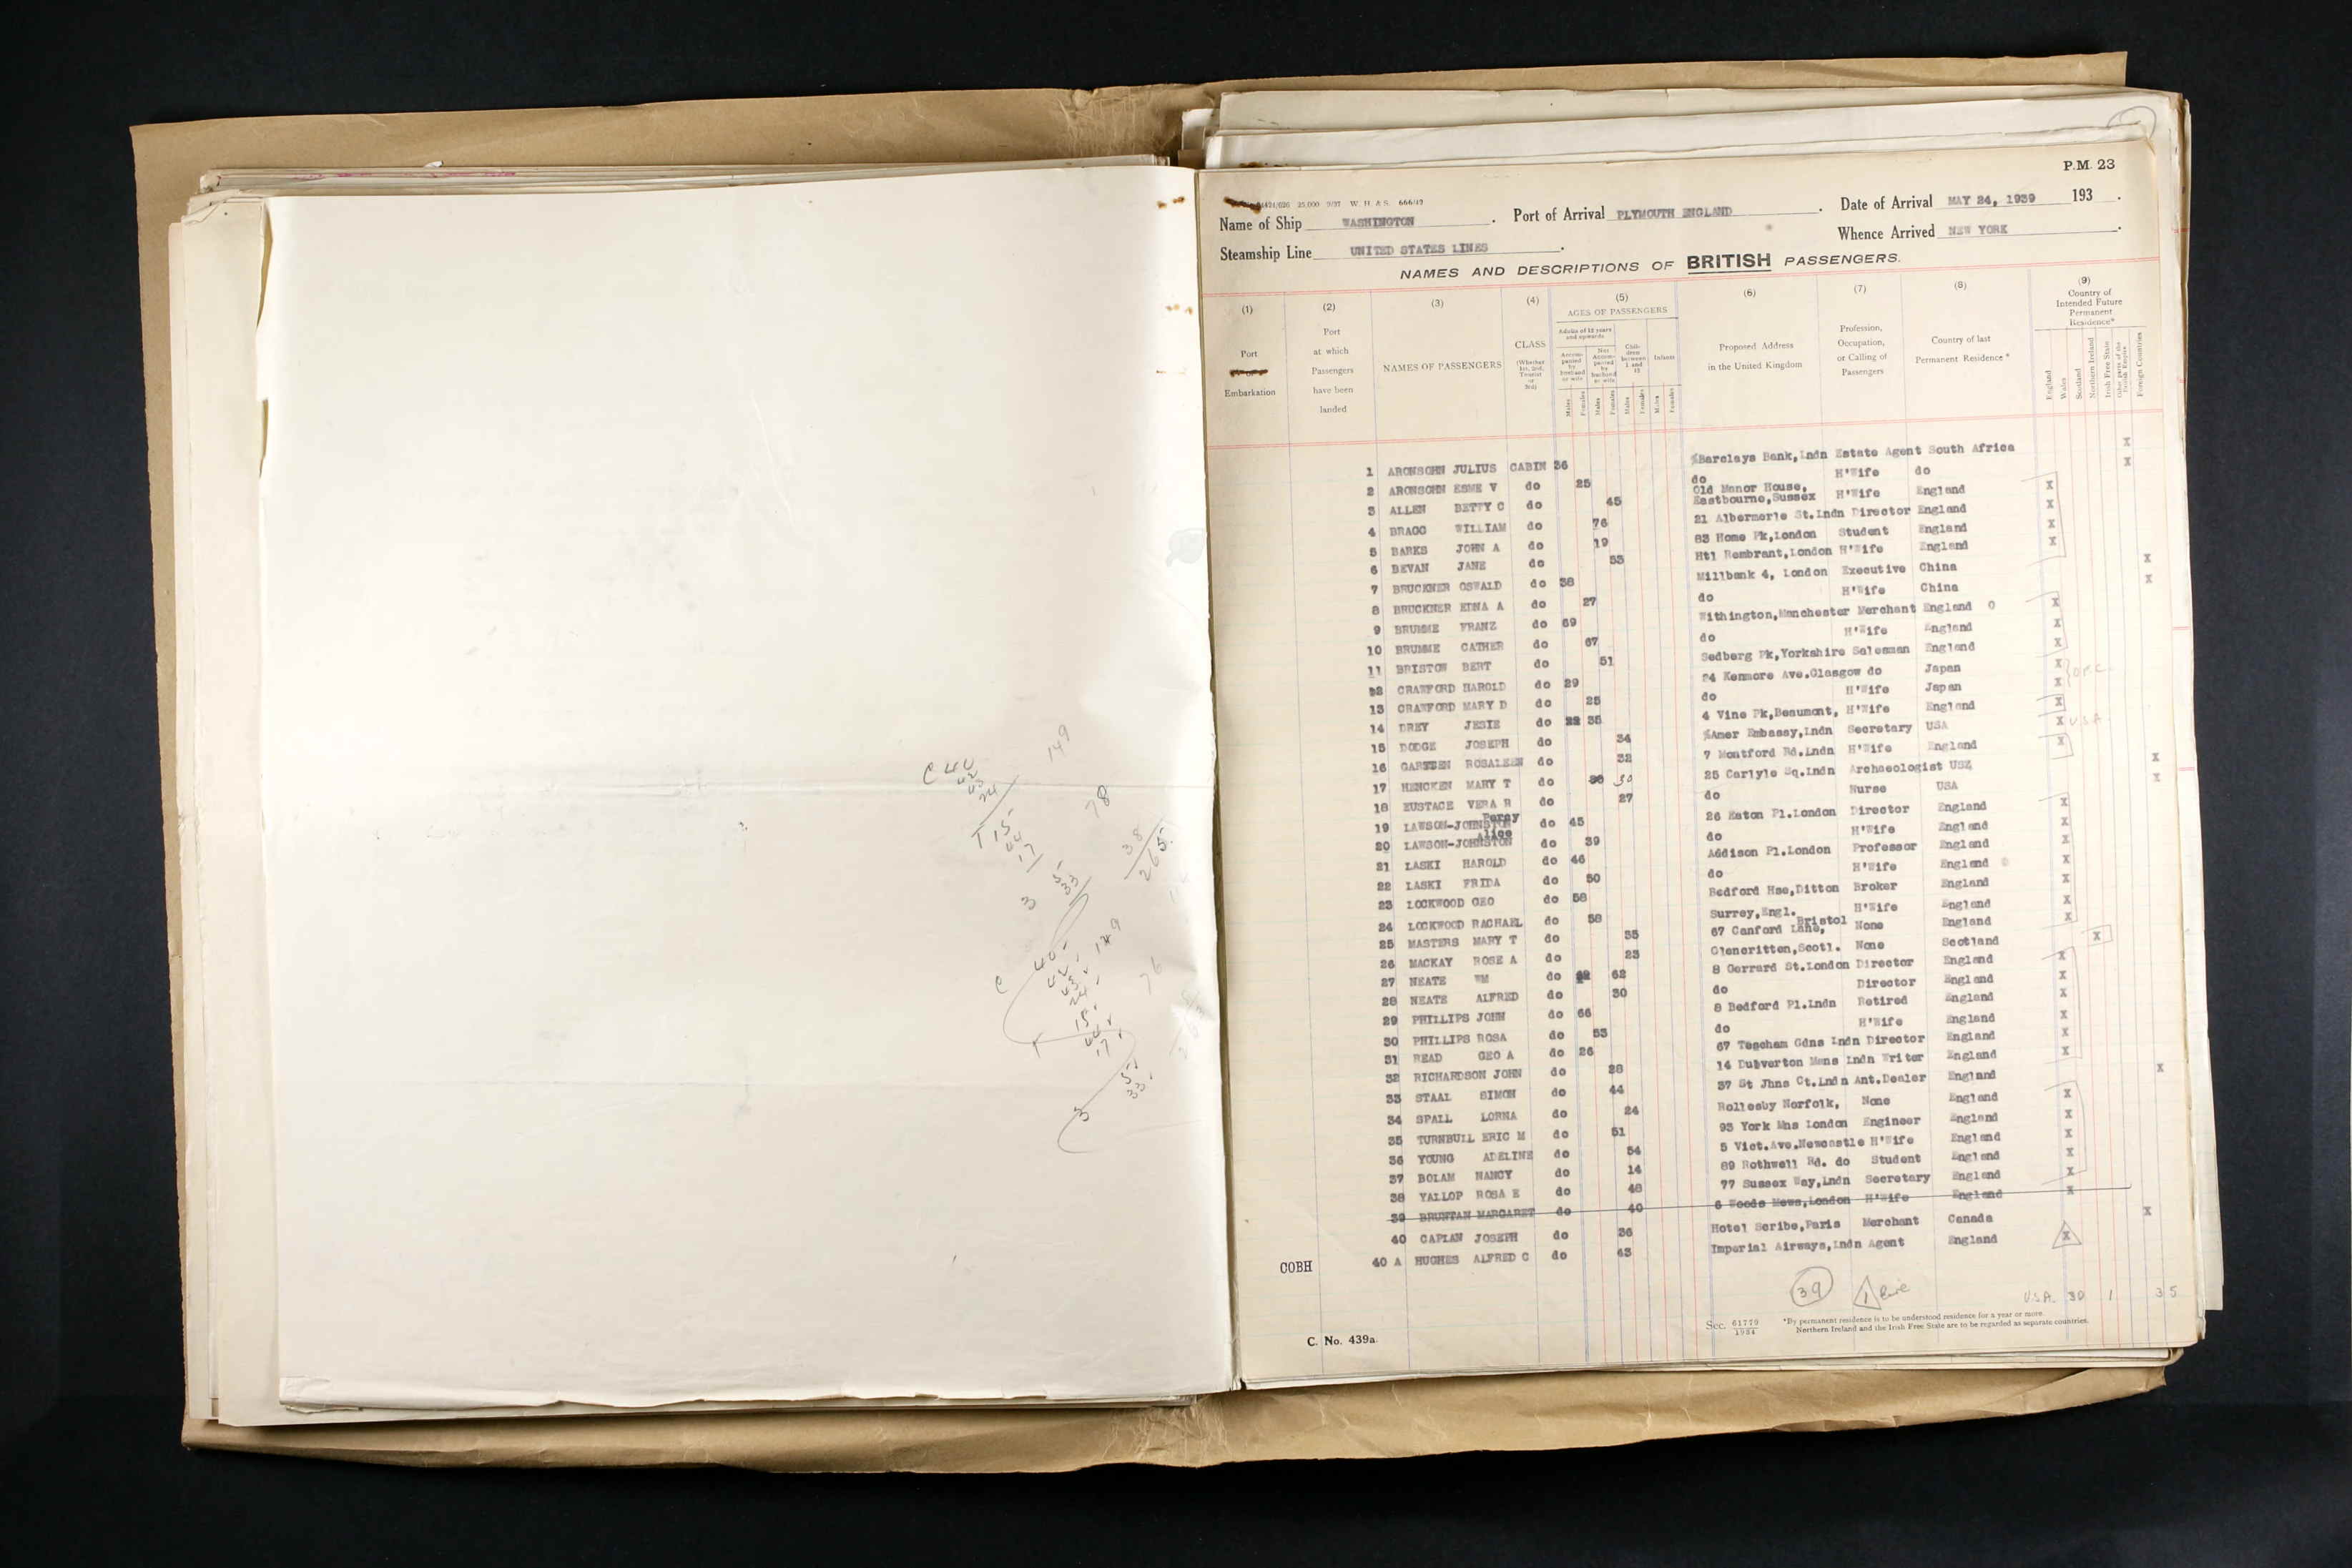 P.M. 23
25,000 9/37 W. H. & S. 666/49
Name of Ship WASHINGTON . Port of Arrival PLYMOUTH ENGLAND . Date of Arrival MAY 24, 1939 193 .
Steamship Line UNITED STATES LINES . Whence Arrived NEW YORK .
NAMES AND DESCRIPTIONS OF BRITISH PASSENGERS.
(1) (2) (3) (4) (5) (6) (7) (8) (9)
Port Embarkation
Port at which Passengers have been landed
NAMES OF PASSENGERS
CLASS (Whether 1st, 2nd, Tourist or 3rd)
AGES OF PASSENGERS
Adults of 12 years and upwards
Accompanied by husband or wife
Not Accompanied by husband or wife
Children between 1 and 12
Infants
Males Females Males Females Males Females Males Females
Proposed Address in the United Kingdom
Profession, Occupation, or Calling of Passengers
Country of last Permanent Residence *
Country of Intended Future Permanent Residence*
England Wales Scotland Northern Ireland Irish Free State Other parts of the British Empire Foreign Countries
1 ARONSOHN JULIUS CABIN 36 %Barclays Bank,Lndn Estate Agent South Africa X
2 ARONSOHN ESME V do 25 do H'Wife do X
3 ALLEN BETTY C do 45 Old Manor House, Eastbourne,Sussex H'Wife England X
4 BRAGG WILLIAM do 76 21 Albermerle St.Lndn Director England X
5 BARKS JOHN A do 19 83 Home Pk,London Student England X
6 BEVAN JANE do 53 Htl Rembrant,London H'Wife England X
7 BRUCKNER OSWALD do 38 Millbank 4, London Executive China X
8 BRUCKNER EDNA A do 27 do H'Wife China X
9 BRUMME FRANZ do 69 Withington,Manchester Merchant England X
10 BRUMME CATHER do 67 do H'Wife England X
11 BRISTOW BERT do 51 Sedberg Pk,Yorkshire Salesman England X
12 CRAWFORD HAROLD do 29 24 Kenmore Ave.Glasgow do Japan X
13 CRAWFORD MARY D do 25 do H'Wife Japan X
14 DREY JESIE do 35 4 Vine Pk,Beaumont, H'Wife England X
15 DODGE JOSEPH do 34 %Amer Embassy,Lndn Secretary USA X U.S.A.
16 ROSALEEN do 32 7 Montford Rd.Lndn H'Wife England X
17 HENCKEN MARY T do 30 25 Carlyle Sq.Lndn Archaeologist USA X
18 EUSTACE VERA R do 27 do Nurse USA X
19 LAWSON-JOHNSTON Percy do 45 26 Eaton Pl.London Director England X
20 LAWSON-JOHNSTON Alice do 39 do H'Wife England X
21 LASKI HAROLD do 46 Addison Pl.London Professor England X
22 LASKI FRIDA do 50 do H'Wife England X
23 LOCKWOOD GEO do 58 Bedford Hse,Ditton Broker England X
24 LOCKWOOD RACHAEL do 58 Surrey,Engl. H'Wife England X
25 MASTERS MARY T do 35 67 Canford Lane, Bristol None England X
26 MACKAY ROSE A do 23 Glencritten,Scotl. None Scotland X
27 NEATE WM do 62 8 Gerrard St.London Director England X
28 NEATE ALFRED do 30 do Director England X
29 PHILLIPS JOHN do 66 8 Bedford Pl.Lndn Retired England X
30 PHILLIPS ROSA do 53 do H'Wife England X
31 READ GEO A do 26 67 Gdns Lndn Director England X
32 RICHARDSON JOHN do 28 14 Dulverton Mans Lndn Writer England X
33 STAAL SIMON do 44 37 St Jhns Ct.Lndn Ant.Dealer England X
34 SPALL LORNA do 24 Rollesby Norfolk, None England X
35 TURNBULL ERIC M do 51 93 York Mns London Engineer England X
36 YOUNG ADELINE do 54 5 Vict.Ave.Newcastle H'Wife England X
37 BOLAM NANCY do 14 89 Rothwell Rd. do Student England X
38 YALLOP ROSA E do 48 77 Sussex Way,Lndn Secretary England X
39 BRUNTAN MARGARET do 40 6 Woods Mews,London H'Wife England X
40 CAPLAN JOSEPH do 36 Hotel Scribe,Paris Merchant Canada X
COBH 40 A HUGHES ALFRED C do 43 Imperial Airways,Lndn Agent England X
39 1
U.S.A. 30 1 35
Sec. 61770 1934
*By permanent residence is to be understood residence for a year or more.
Northern Ireland and the Irish Free State are to be regarded as separate countries.
C. No. 439a.
149
78
38
265